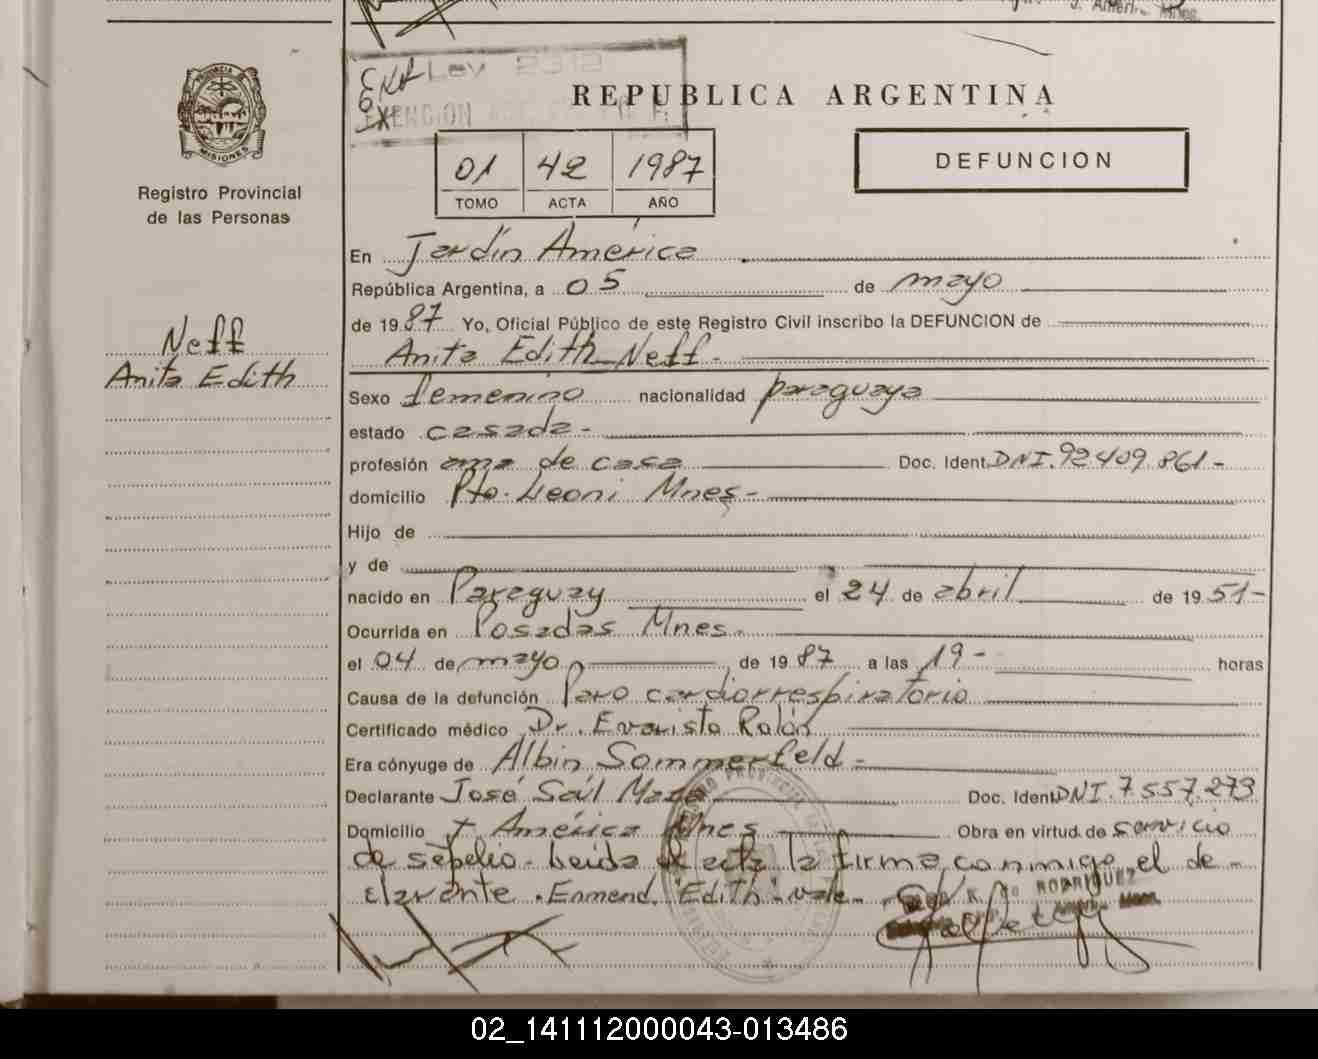 J. Améri. Mnes.
Exp Ley 2312
EXENCION
REPUBLICA ARGENTINA
PROVINCIA DE
MISIONES
Registro Provincial
de las Personas
01 42 1987
TOMO ACTA AÑO
DEFUNCION
Neff
Anita Edith
En Jardín América
República Argentina, a 05 de mayo
de 1987 Yo, Oficial Público de este Registro Civil inscribo la DEFUNCION de
Anita Edith Neff.
Sexo femenino nacionalidad paraguaya
estado casada-
profesión ama de casa Doc. Ident. DNI. 92409861-
domicilio Pto. Leoni Mnes-
Hijo de
y de
nacido en Paraguay el 24 de abril de 1951-
Ocurrida en Posadas Mnes.
el 04 de mayo de 1987 a las 19- horas
Causa de la defunción Paro cardiorrespiratorio
Certificado médico Dr. Evaristo Rolón
Era cónyuge de Albin Sommerfeld-
Declarante José Saúl Doc. Ident. DNI. 7557.273
Domicilio J América Mnes Obra en virtud de servicio
de sepelio. Leída el acta la firma conmigo el de-
clarante. Enmend. "Edith" vale-
RODRIGUEZ
02_141112000043-013486